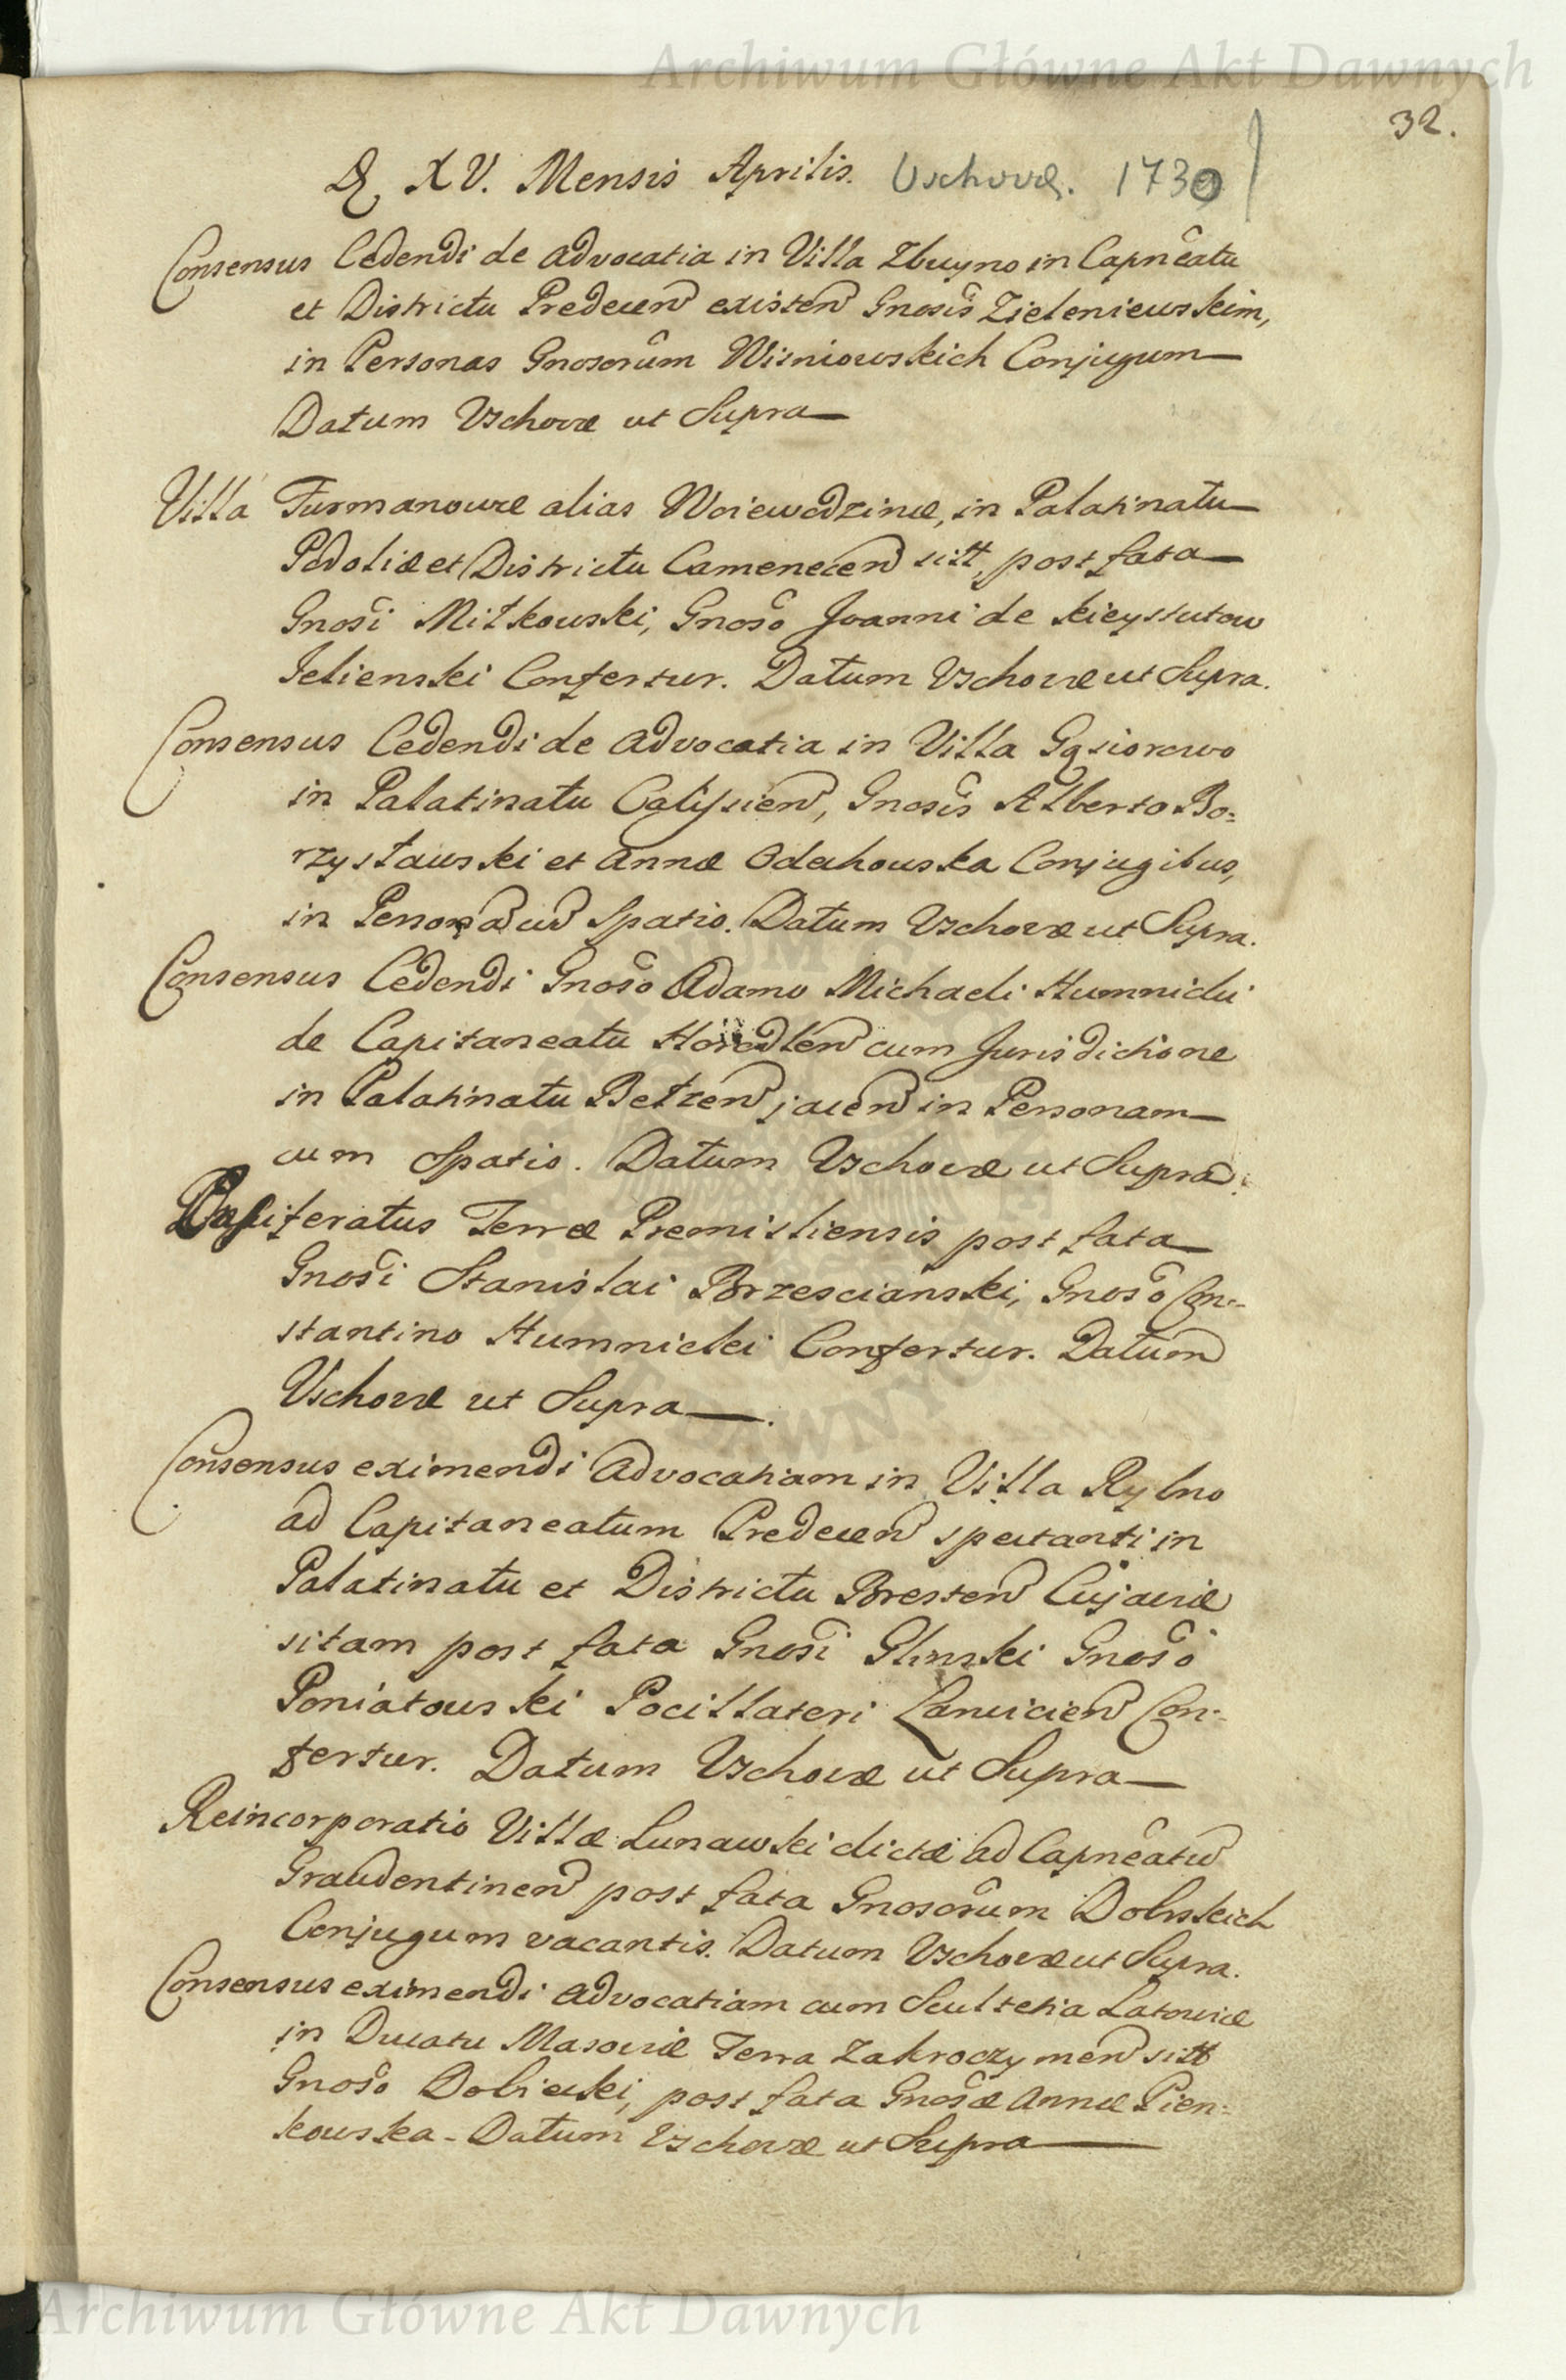 Archiwum Główne Akt Dawnych
32.
D. XV. Mensis Aprilis. Vschovæ. 1730
Consensus Cedendi de advocatia in Villa Zbuyno in Capnêatu
et Districtu Predecen existen Gnosis Zieleniewskim,
in Personas Gnosorûm Wisniowskich Conjugum
Datum Vschovæ ut Supra
Villa Furmanowce alias Woiewodzince, in Palatinatu
Podoliæ et Districtu Camenecen sitt, post fata
Gnosi Mitkowski, Gnoso Joanni de Kieyssutow
Jelienski Confertur. Datum Vschovæ ut Supra.
Consensus Cedendi de advocatia in Villa Gąsiorowo
in Palatinatu Calissien, Gnosis Alberto Bo=
rzysławski et Annæ Odachowska Conjugibus,
in Spatio. Datum Vschovæ ut Supra.
Consensus Cedendi Gnoso Adamo Michaeli Humnicki
de Capitaneatu Horodlen cum Jurisdictione
in Palatinatu Belzen jacen in Personam
cum Spatio. Datum Vschovæ ut Supra.
Dapiferatus Terræ Premisliensis post fata
Gnosi Stanislai Brzescianski, Gnoso Con=
stantino Humnicki Confertur. Datum
Vschovæ ut Supra.
Consensus eximendi Advocatiam in Villa Rybno
ad Capitaneatum Predecen spectanti in
Palatinatu et Districtu Bresten Cujaviæ
sitam post fata Gnosi Glinski Gnoso
Poniatowski Pocillatori Lancicien Con=
fertur. Datum Vschovæ ut Supra
Reincorporatio Villæ Lunawski dictæ ad Capnêatu
Graudentinen post fata Gnosorûm Dolnskich
Conjugum vacantis. Datum Vschovæ ut Supra.
Consensus eximendi advocatiam cum Scultetia Latowicæ
in Ducatu Masoviæ Terra Zakroczymen sitt
Gnoso Dobiecki, post fata Gnosæ Annæ Pien=
kowska. Datum Vschovæ ut Supra
Archiwum Główne Akt Dawnych